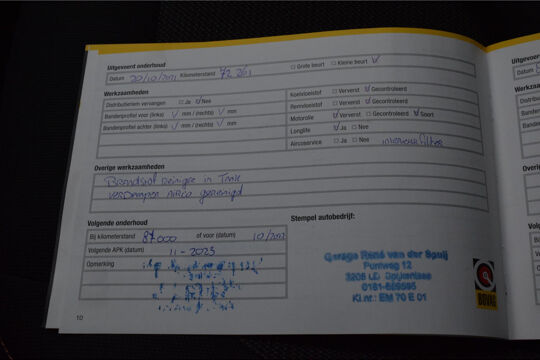 Uitgevoerd onderhoud
Datum 20/10/2021 Kilometerstand 72 261 □ Grote beurt □ Kleine beurt V
Werkzaamheden
Distributieriem vervangen □ Ja V Nee
Bandenprofiel voor (links) V mm / (rechts) V mm
Bandenprofiel achter (links) V mm / (rechts) V mm
Koelvloeistof □ Ververst V Gecontroleerd
Remvloeistof □ Ververst V Gecontroleerd
Motorolie V Ververst □ Gecontroleerd V Soort
Longlife V Ja □ Nee
Aircoservice □ Ja □ Nee interieurfilter
Overige werkzaamheden
Brandstof reiniger in Tank
verdamper AIRCO gereinigd
Volgende onderhoud
Bij kilometerstand 87000 of voor (datum) 10/2022
Volgende APK (datum) 11-2023
Opmerking
Stempel autobedrijf:
Garage René van der Spuij
Puntweg 12
3208 LD Spijkenisse
Kl.nr.: EM 70 E 01
BOVAG
10
Uitgevoer
Datum
Werkzaa
Distribut
Bandenp
Bandenp
Overig
Volge
Bij k
Volg
Op